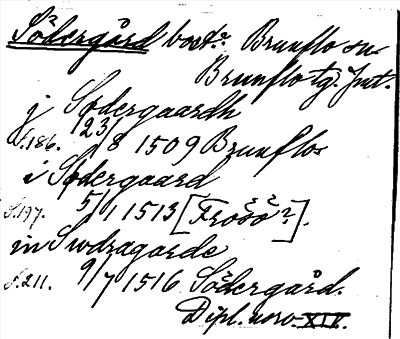 Södergård bost? Brunflo sn
Brunflo tg. Jmt.
j Södergaardh
S.186. 23/8 1509 Brunflo
i Södergaard
S.197. 5/1 1513 [Frösö?].
in Swdragarde
S.211. 9/7 1516 Södergård.
Dipl. norv. XIV.